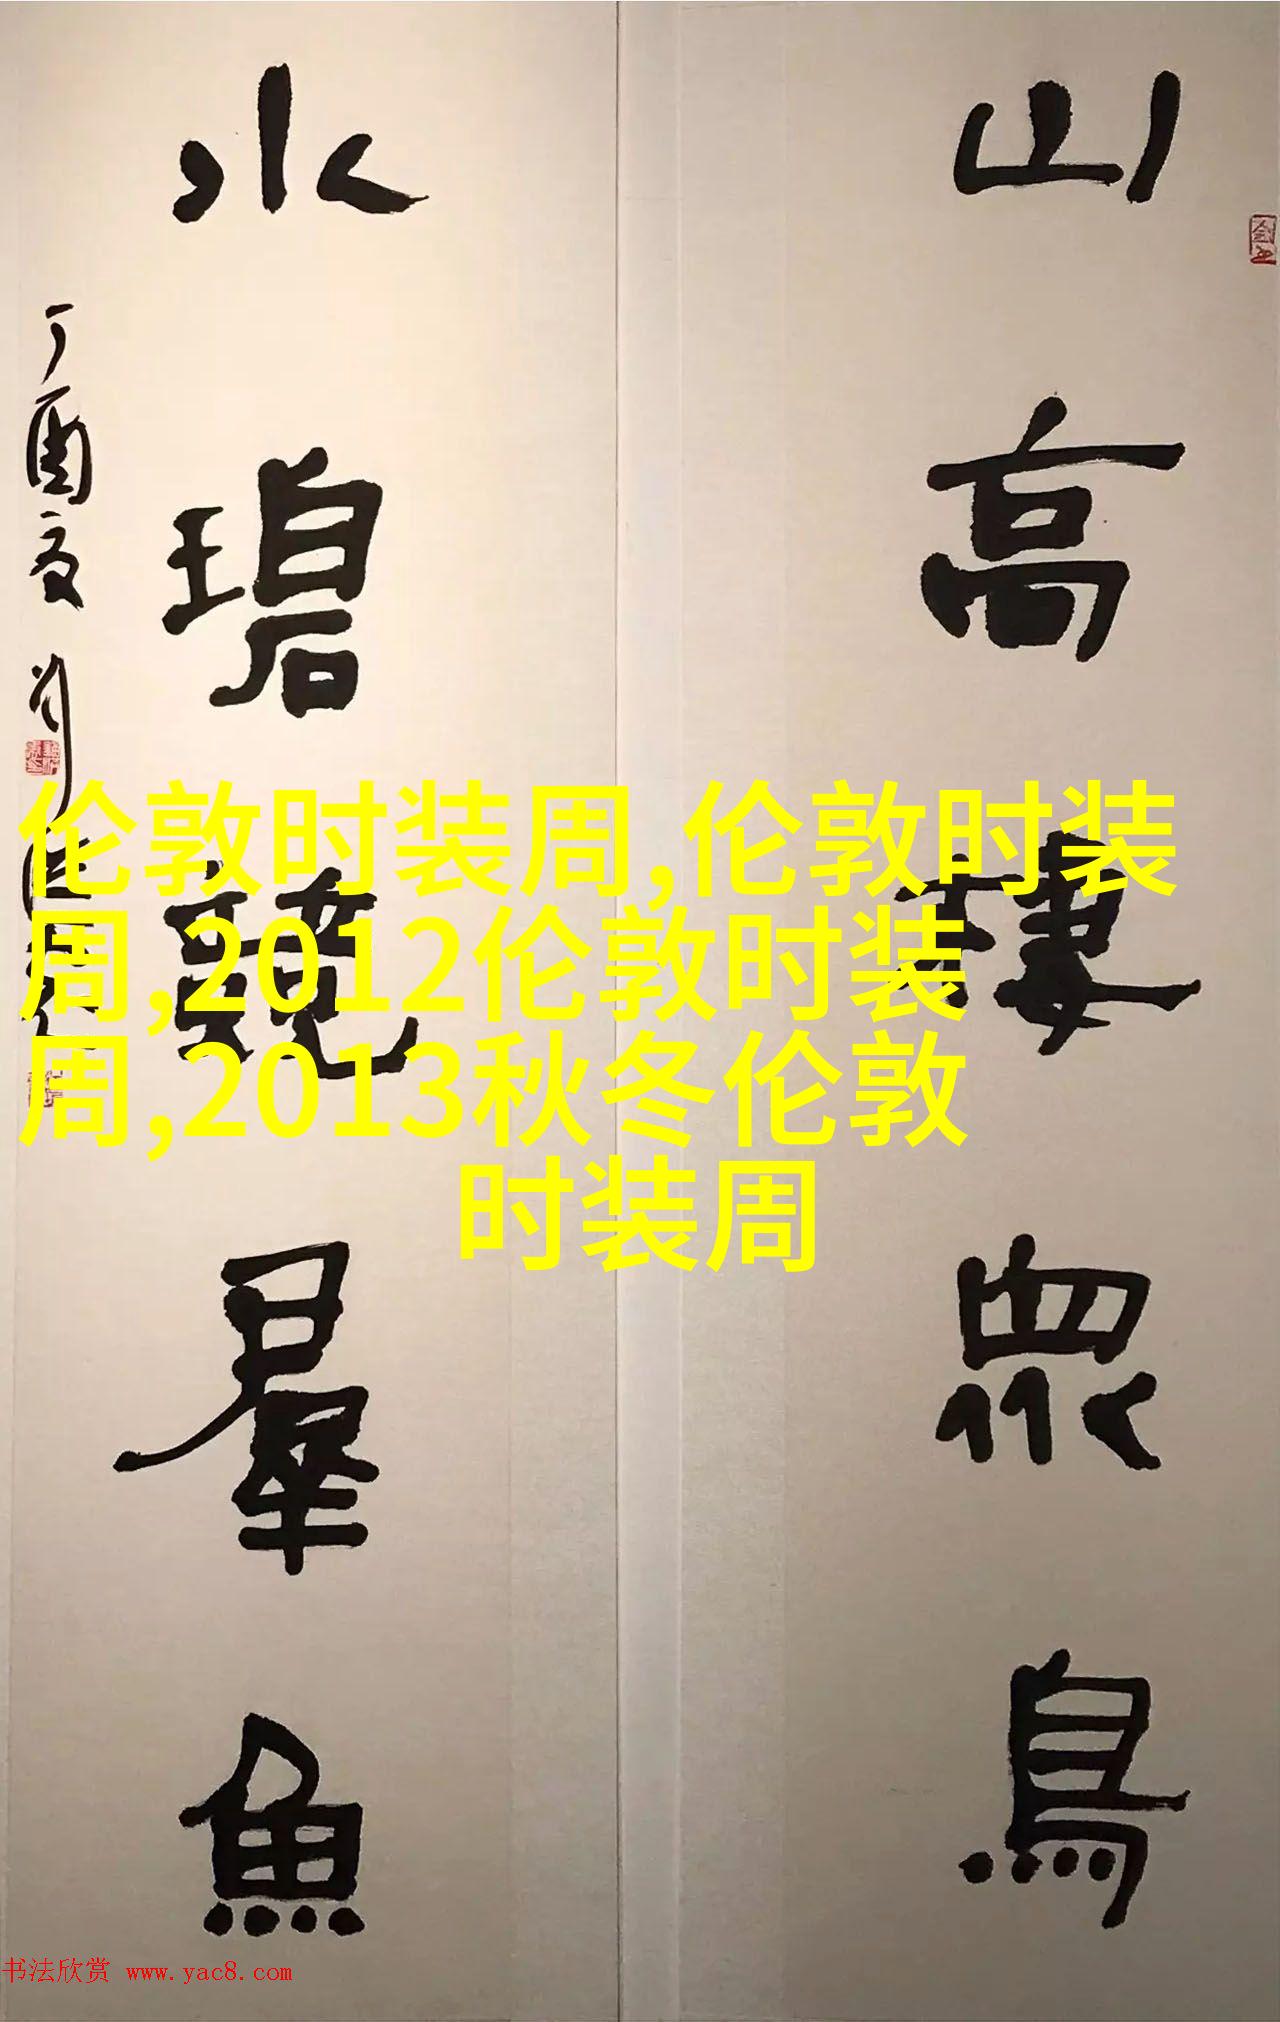 山高棲眾鳥
水碧競羣魚
丁酉夏
伦敦时装周,伦敦时装
周,2012伦敦时装
周,2013秋冬伦敦
时装周
书法欣赏 www.yac8.com